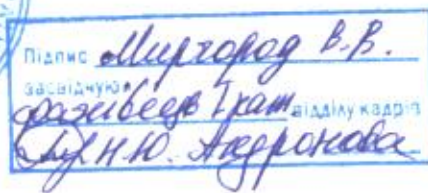 Підпис Миргород В.В.
засвідчую
фахівець І кат. відділу кадрів
Н.Ю. Андронова